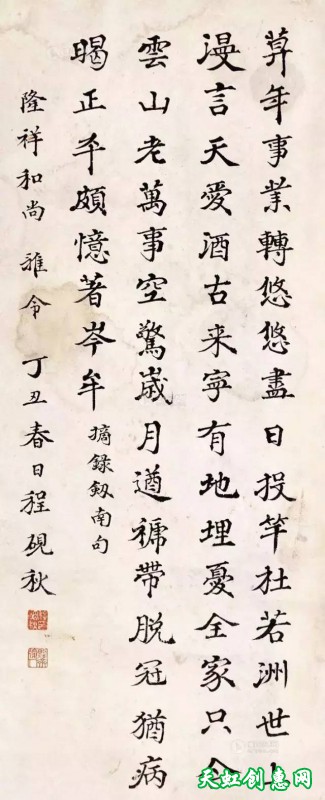 莫年事業轉悠悠盡日投竿杜若洲世上
漫言天愛酒古来寧有地埋憂全家只合
雲山老萬事空驚嵗月遒褫帶脫冠猶病
暍正平頗憶著岑牟
摘錄劔南句
隆祥和尚雅令丁丑春日程硯秋
天虹创惠网